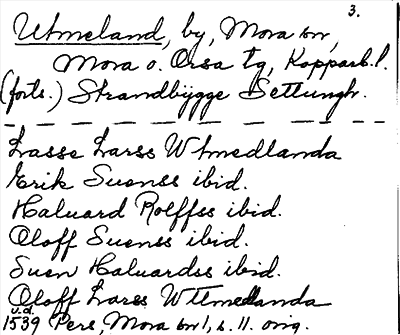 3.
Utmeland, by, Mora sn,
Mora o. Orsa tg, Kopparb. l.
(forts.) Strandbygge Settungh.
Lasse Larss Wtmedlanda
Erik Suenss ibid.
Haluard Rolffss ibid.
Oloff Suenss ibid.
Suen Haluardss ibid.
Oloff Larss Wttmedlanda
u.d.
1539 Pers, Mora sn 1, s. 11. orig.